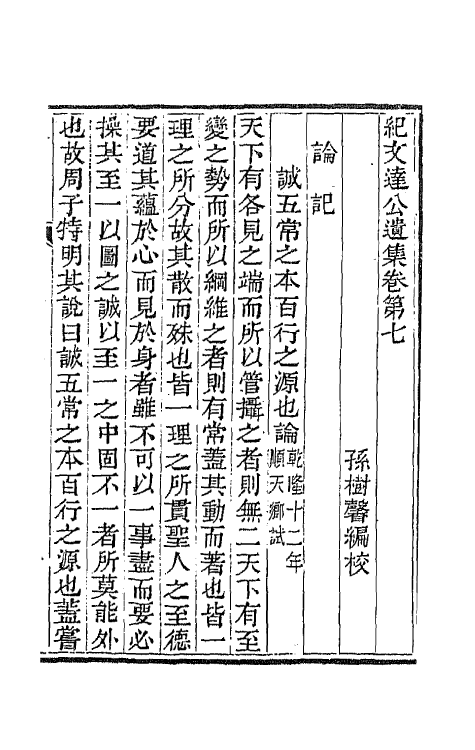 紀文達公遺集卷第七
孫樹馨編校
論記
誠五常之本百行之源也論乾隆十二年順天鄉試
天下有各見之端而所以管攝之者則無二天下有至
變之勢而所以綱維之者則有常蓋其動而著也皆一
理之所分故其散而殊也皆一理之所貫聖人之至德
要道其蘊於心而見於身者雖不可以一事盡而要必
操其至一以圖之誠以至一之中固不一者所莫能外
也故周子特明其說曰誠五常之本百行之源也蓋嘗